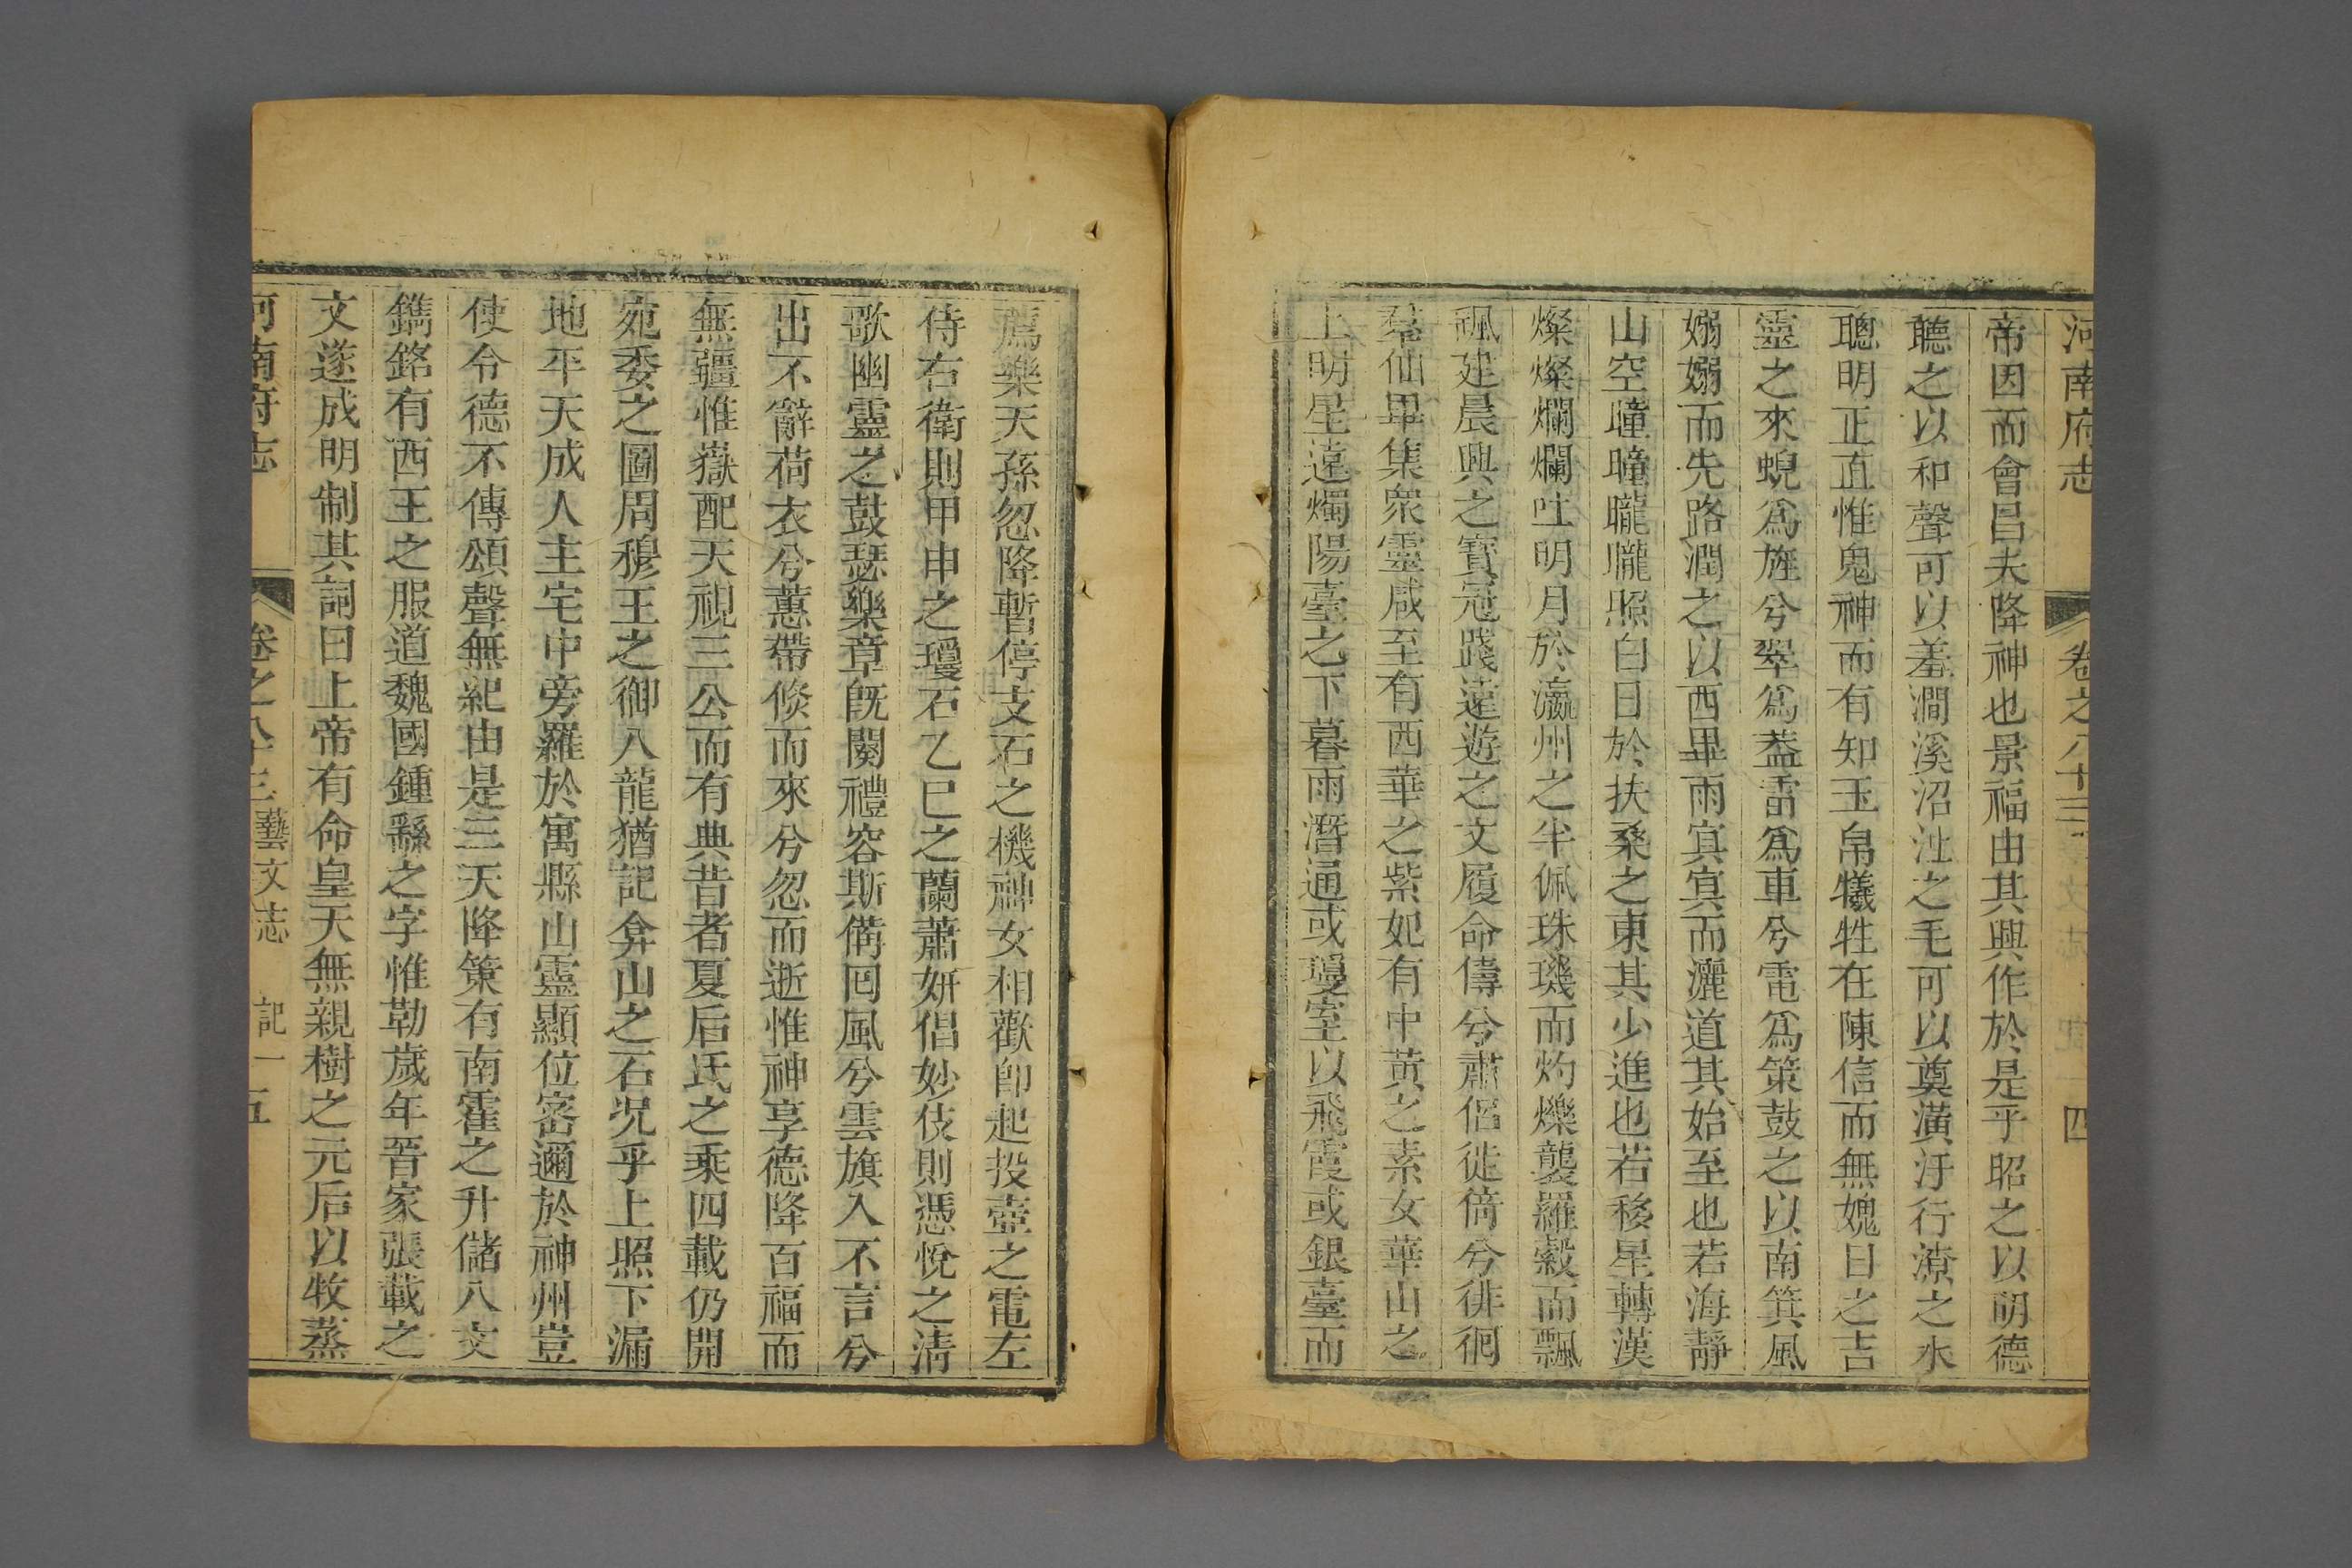 河南府志 卷之八十三 四
帝因而會昌夫降神也景福由其興作於是乎昭之以明德
聽之以和聲可以羞澗溪沼沚之毛可以奠潢汙行潦之水
聰明正直惟鬼神而有知玉帛犧牲在陳信而無媿日之吉
靈之來蜺爲旌兮翠爲葢雷爲車兮電爲策鼓之以南箕風
嫋嫋而先路潤之以西畢雨寅寅而灑道其始至也若海靜
山空曈曈曨曨照白日於扶桑之東其少進也若移星轉漢
燦燦爛爛吐明月於瀛州之半佩珠璣而灼爍襲羅縠而飄
颻建晨興之寶冠踐遠遊之文履命儔兮肅侶徙倚兮徘徊
羣仙畢集衆靈咸至有西華之紫妃有中黃之素女華山之
上明星遠燭陽臺之下暮雨潛通或瓊室以飛霞或銀臺而
薦樂天孫忽降暫停支石之機神女相歡卽起投壺之電左
侍右衛則甲申之瓊石乙巳之蘭蕭妍倡妙伎則憑悅之淸
歌幽靈之鼓瑟樂章旣闋禮容斯備囘風兮雲旗入不言兮
出不辭荷衣兮蕙帶倐而來兮忽而逝惟神享德降百福而
無疆惟嶽配天視三公而有典昔者夏后氏之乘四載仍開
宛委之圖周穆王之御八龍猶記弇山之石况乎上照下漏
地平天成人主宅中旁羅於寓縣山靈顯位密邇於神州豈
使令德不傳頌聲無紀由是三天降策有南霍之升儲八文
鐫銘有西王之服道魏國鍾繇之字惟勒歲年晉家張載之
文遂成明制其詞曰上帝有命皇天無親樹之元后以牧蒸
河南府志 卷之八十三 藝文志 記一 五